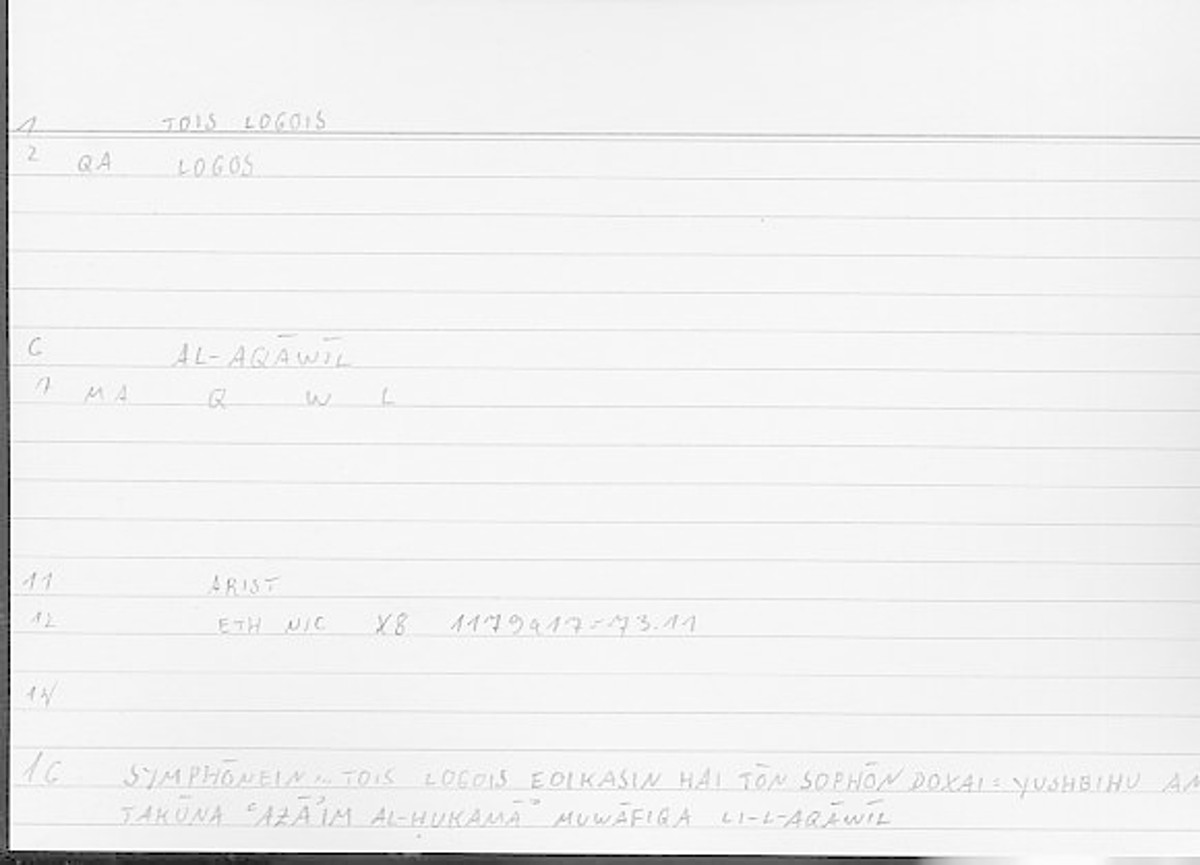 1 TOIS LOGOIS
2 QA LOGOS
6 AL-AQĀWĪL
7 MA Q W L
11 ARIST
12 ETH NIC X8 1179a17=73.11
14
16 SYMPHŌNEIN .. TOIS LOGOIS EOIKASIN HAI TŌN SOPHŌN DOXAI = YUSHBIHU AN
TAKŪNA ʿAZĀʾIM AL-ḤUKAMĀʾ MUWĀFIQA LI-L-AQĀWĪL